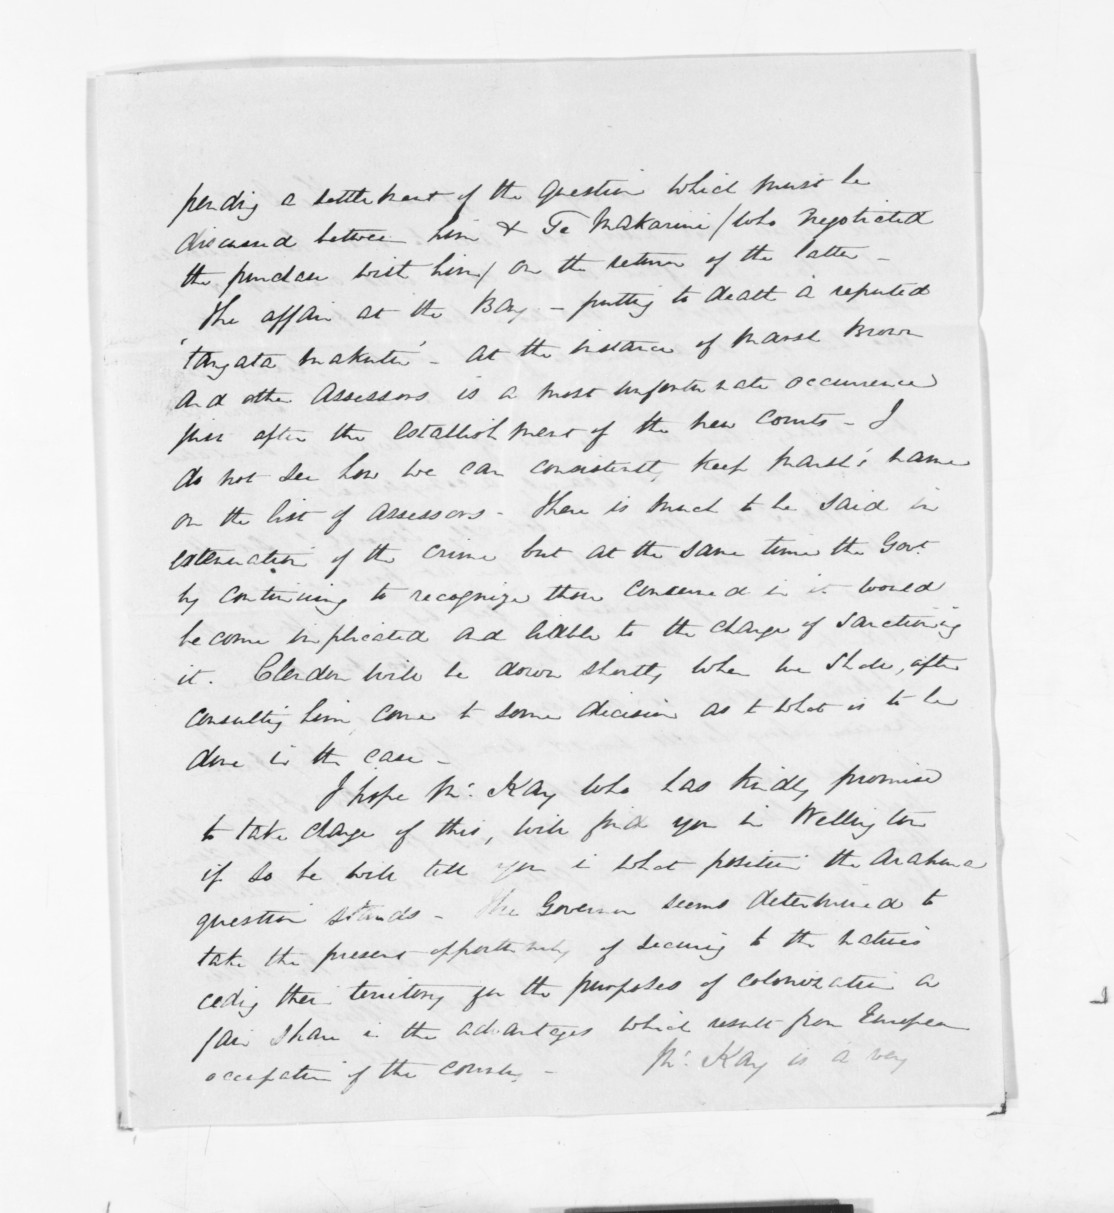 pending a settlement of the question which must be
discussed between him & Te Makarini /who negotiated
the purchase with him/ on the return of the latter -
The affair at the Bay - putting to death a reputed
'tangata makutu' - at the instance of Marsh Brown
and other Assessors is a most unfortunate occurrence
just after the establishment of the new Courts - I
do not see how we can consistently keep Marsh's name
on the list of assessors - There is much to be said in
extenuation of the crime but at the same time the Govt.
by continuing to recognize those concerned in it would
become implicated and liable to the charge of sanctioning
it. Clendon will be down shortly when we shall, after
consulting him, come to some decision as to what is to be
done in the case -
I hope Mr. Kay who has kindly promised
to take charge of this, will find you in Wellington
if so he will tell you in what position the Arahura
question stands - The Governor seems determined to
take the present opportunity of securing to the natives
ceding their territory for the purposes of colonization a
fair share in the advantages which result from European
occupation of the country - Mr. Kay is a very